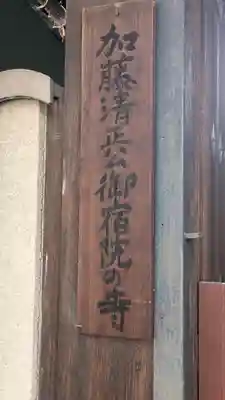 加藤清正公御宿院の寺